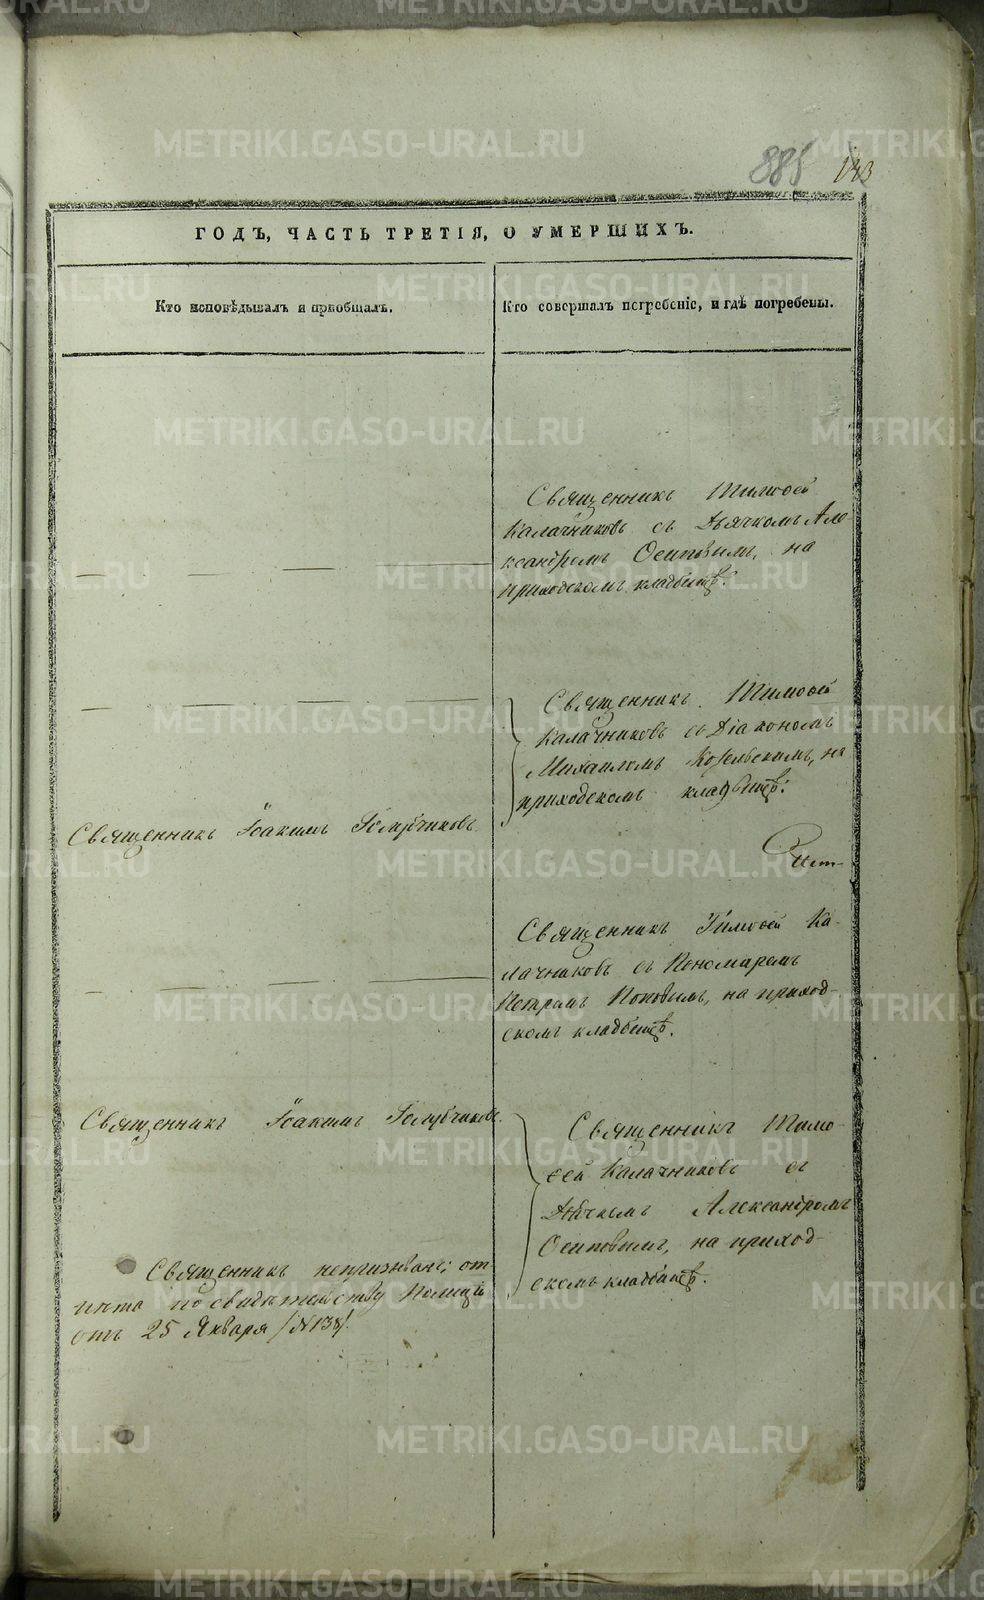 885 143
ГОДЪ, ЧАСТЬ ТРЕТІЯ, О УМЕРШИХЪ.
Кто исповѣдывалъ и пріобщалъ.
Кто совершалъ погребеніе, и гдѣ погребены.
Священникъ Тимоѳей
Калачниковъ съ Дьячкомъ Але-
ксандромъ Осиповымъ, на
приходскомъ кладбищѣ.
Священникъ Тимоѳей
Калачниковъ съ Діакономъ
Михаиломъ Козельскимъ, на
приходскомъ кладбищѣ.
Священникъ Іоакимъ Голубчиковъ
Священникъ Тимоѳей Ка-
лачниковъ съ Пономаремъ
Петромъ Поповымъ, на приход-
скомъ кладбищѣ.
Священникъ Іоакимъ Голубчиковъ.
Священникъ Тимо-
ѳей Калачниковъ съ
Дьячкомъ Александромъ
Осиповымъ, на приход-
скомъ кладбищѣ.
Священникъ от-
пѣта по свидѣтельству Полиціи
отъ 25 Января /№138/.
METRIKI.GASO-URAL.RU